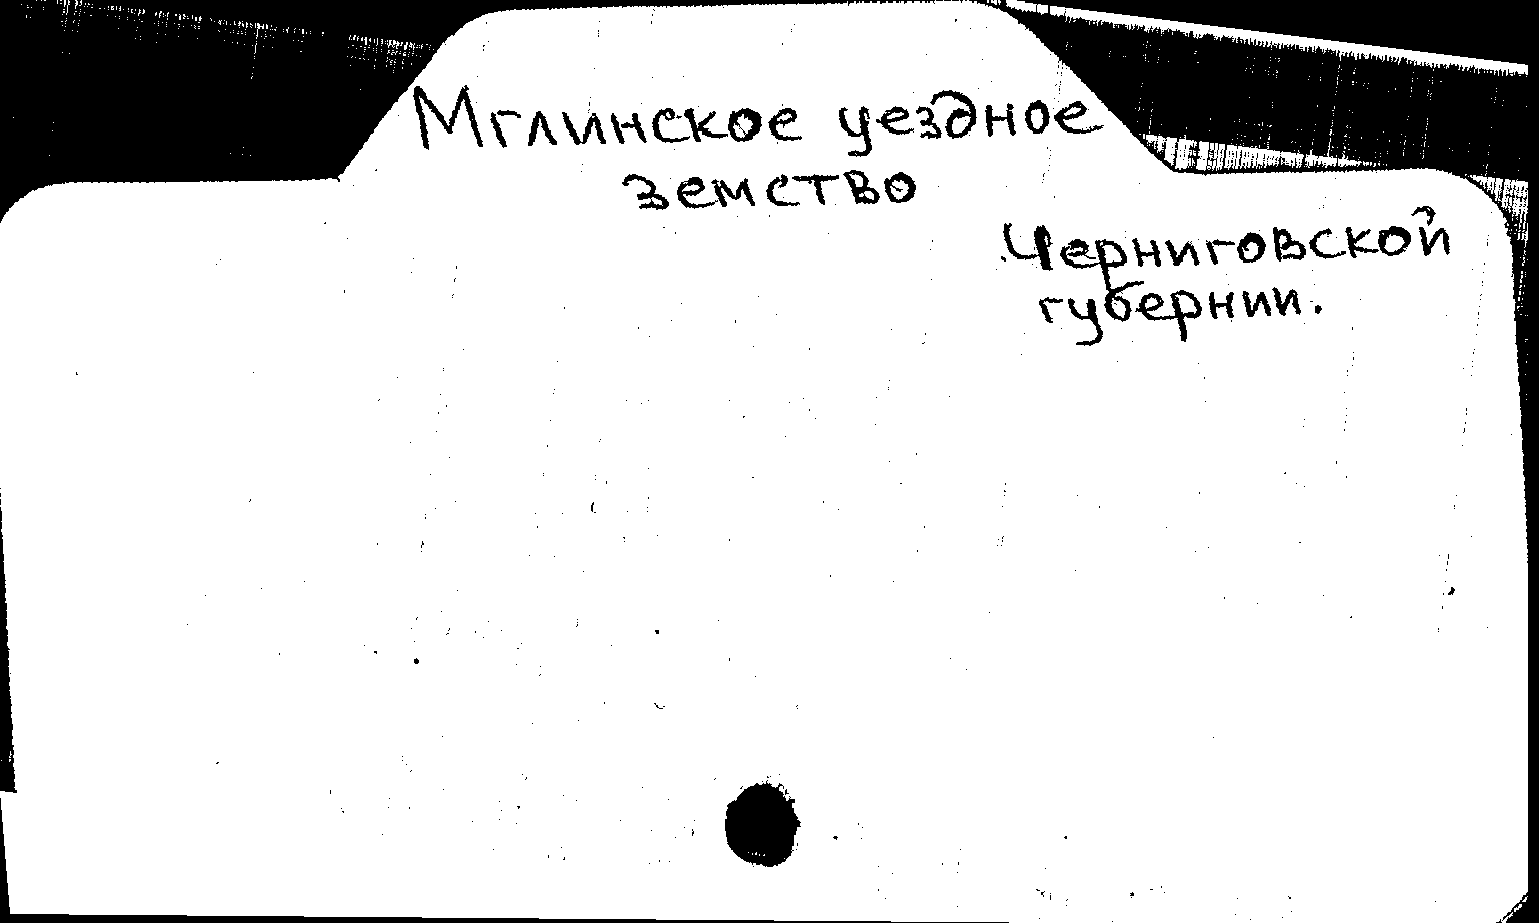 Мглинское уездное
земство
Черниговской
губернии.